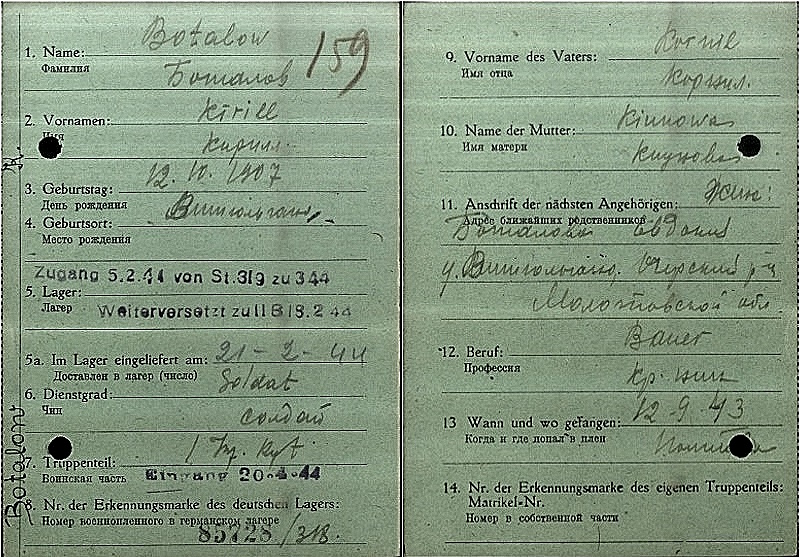 Botalow
159
1. Name:
Фамилия
Боталов
2. Vornamen:
Kirill
Имя
Кирилл
3. Geburtstag: 12. 10. 1907
День рождения
4. Geburtsort:
Место рождения
Zugang 5.2.44 von St.319 zu 344
5. Lager:
Лагер
Weiterversetzt zu II B 18.2 44
5a. Im Lager eingeliefert am: 21-2-44
Доставлен в лагер (число)
6. Dienstgrad: Soldat
Чин
солдат
7. Truppenteil:
Воинская часть
Eingang 20-4-44
8. Nr. der Erkennungsmarke des deutschen Lagers:
Номер военнопленного в германском лагере
85728/318.
Botalow
9. Vorname des Vaters: Kornil
Имя отца
Корнил.
10. Name der Mutter:
Имя матери
11. Anschrift der nächsten Angehörigen:
Адрес ближайших родственников
Боталова Евдокия
Очерский р-н
Молотовской обл.
12. Beruf: Bauer
Профессия
13 Wann und wo gefangen: 12-9-43
Когда и где попал в плен
14. Nr. der Erkennungsmarke des eigenen Truppenteils:
Matrikel-Nr.
Номер в собственной части